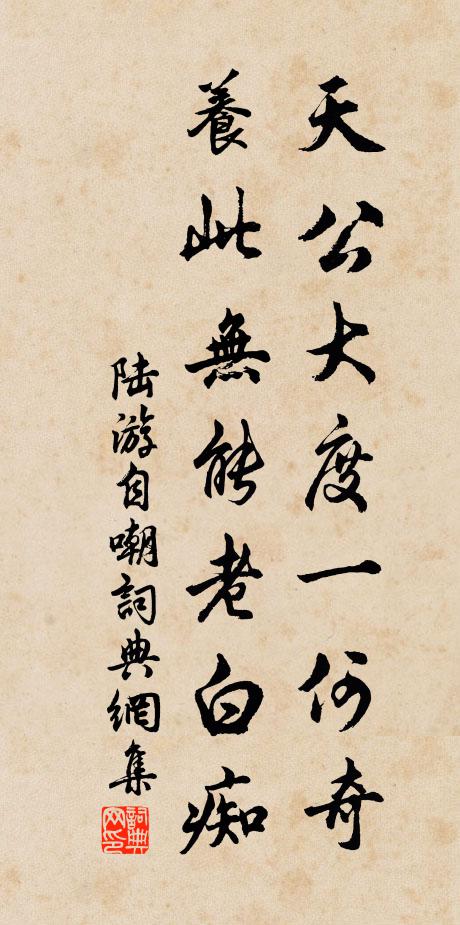 天公大度一何奇
養此無能老白痴
陆游自嘲詞典網集
詞典网印